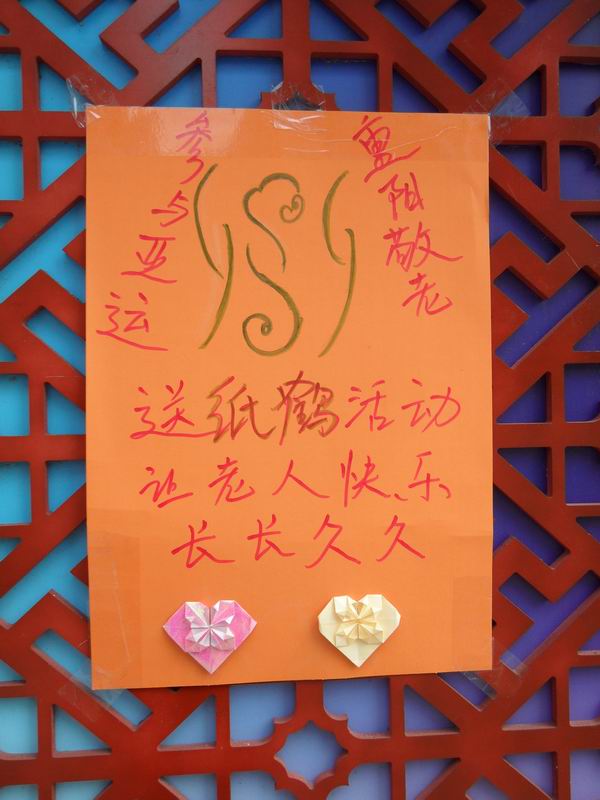 参与亚运
重阳敬老
送纸鹤活动
让老人快乐
长长久久